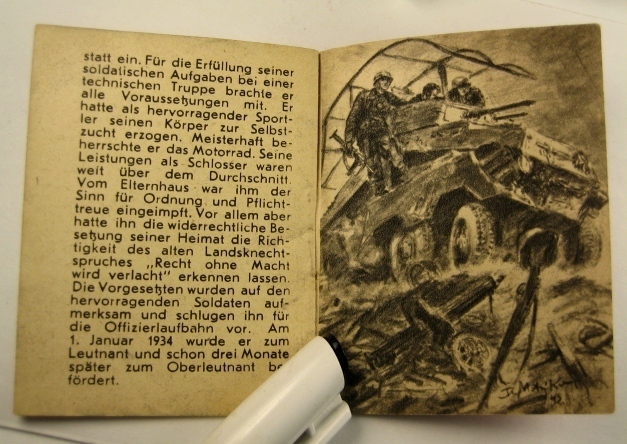 statt ein. Für die Erfüllung seiner
soldatischen Aufgaben bei einer
technischen Truppe brachte er
alle Voraussetzungen mit. Er
hatte als hervorragender Sport-
ler seinen Körper zur Selbst-
zucht erzogen. Meisterhaft be-
herrschte er das Motorrad. Seine
Leistungen als Schlosser waren
weit über dem Durchschnitt.
Vom Elternhaus war ihm der
Sinn für Ordnung und Pflicht-
treue eingeimpft. Vor allem aber
hatte ihn die widerrechtliche Be-
setzung seiner Heimat die Rich-
tigkeit des alten Landsknecht-
spruches „Recht ohne Macht
wird verlacht" erkennen lassen.
Die Vorgesetzten wurden auf den
hervorragenden Soldaten auf-
merksam und schlugen ihn für
die Offizierlaufbahn vor. Am
1. Januar 1934 wurde er zum
Leutnant und schon drei Monate
später zum Oberleutnant be-
fördert.